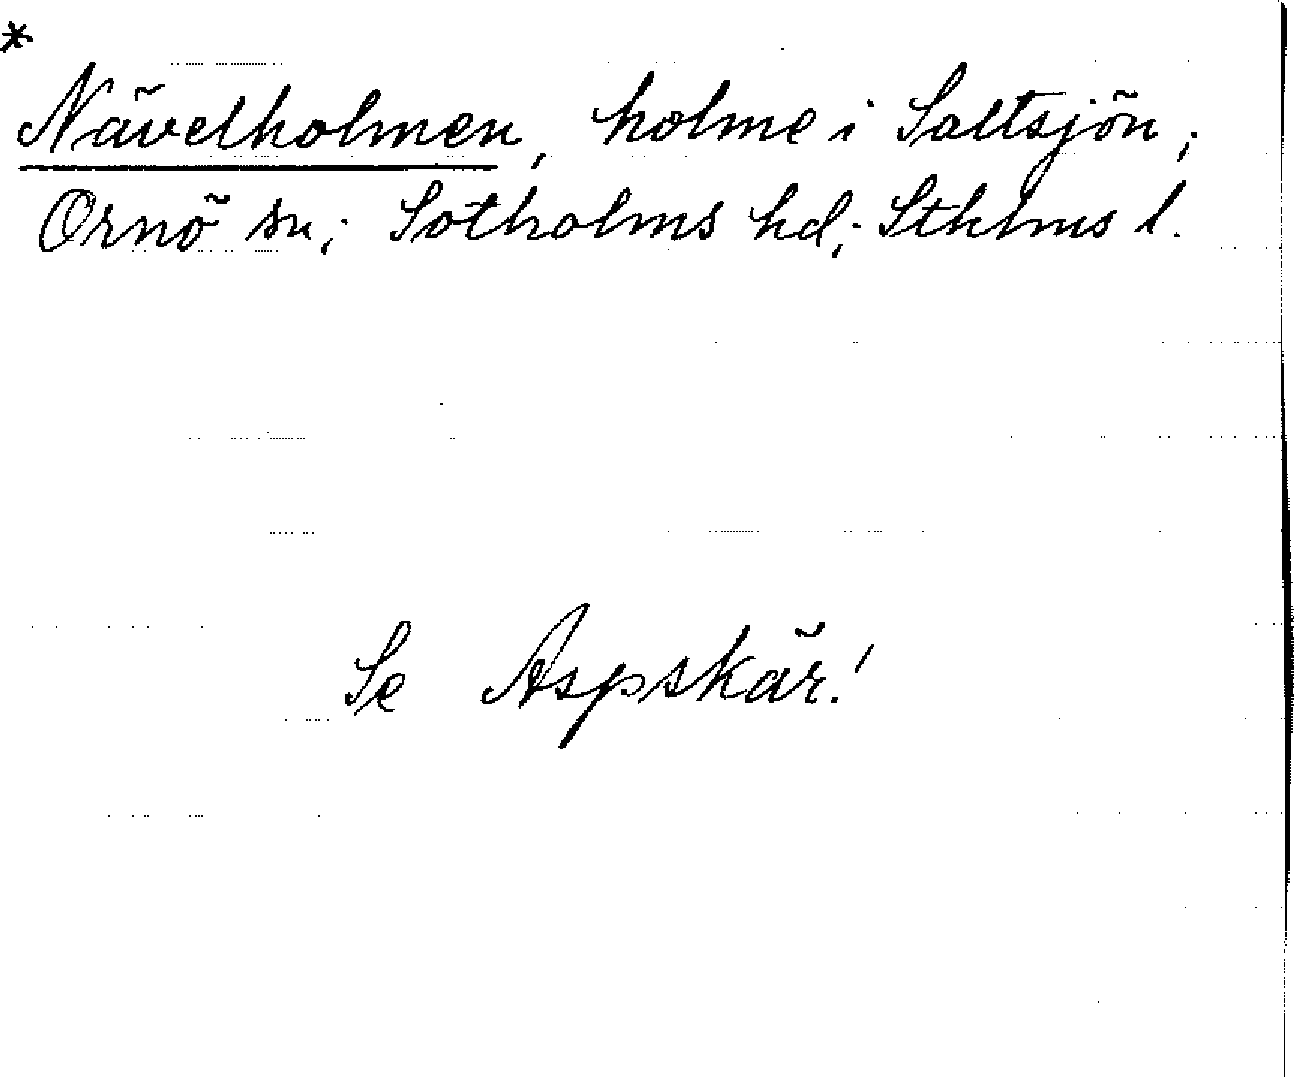 *
Nävelholmen, holme i Saltsjön;
Ornö sn; Sotholms hd; Sthlms l.
Se Aspskär!